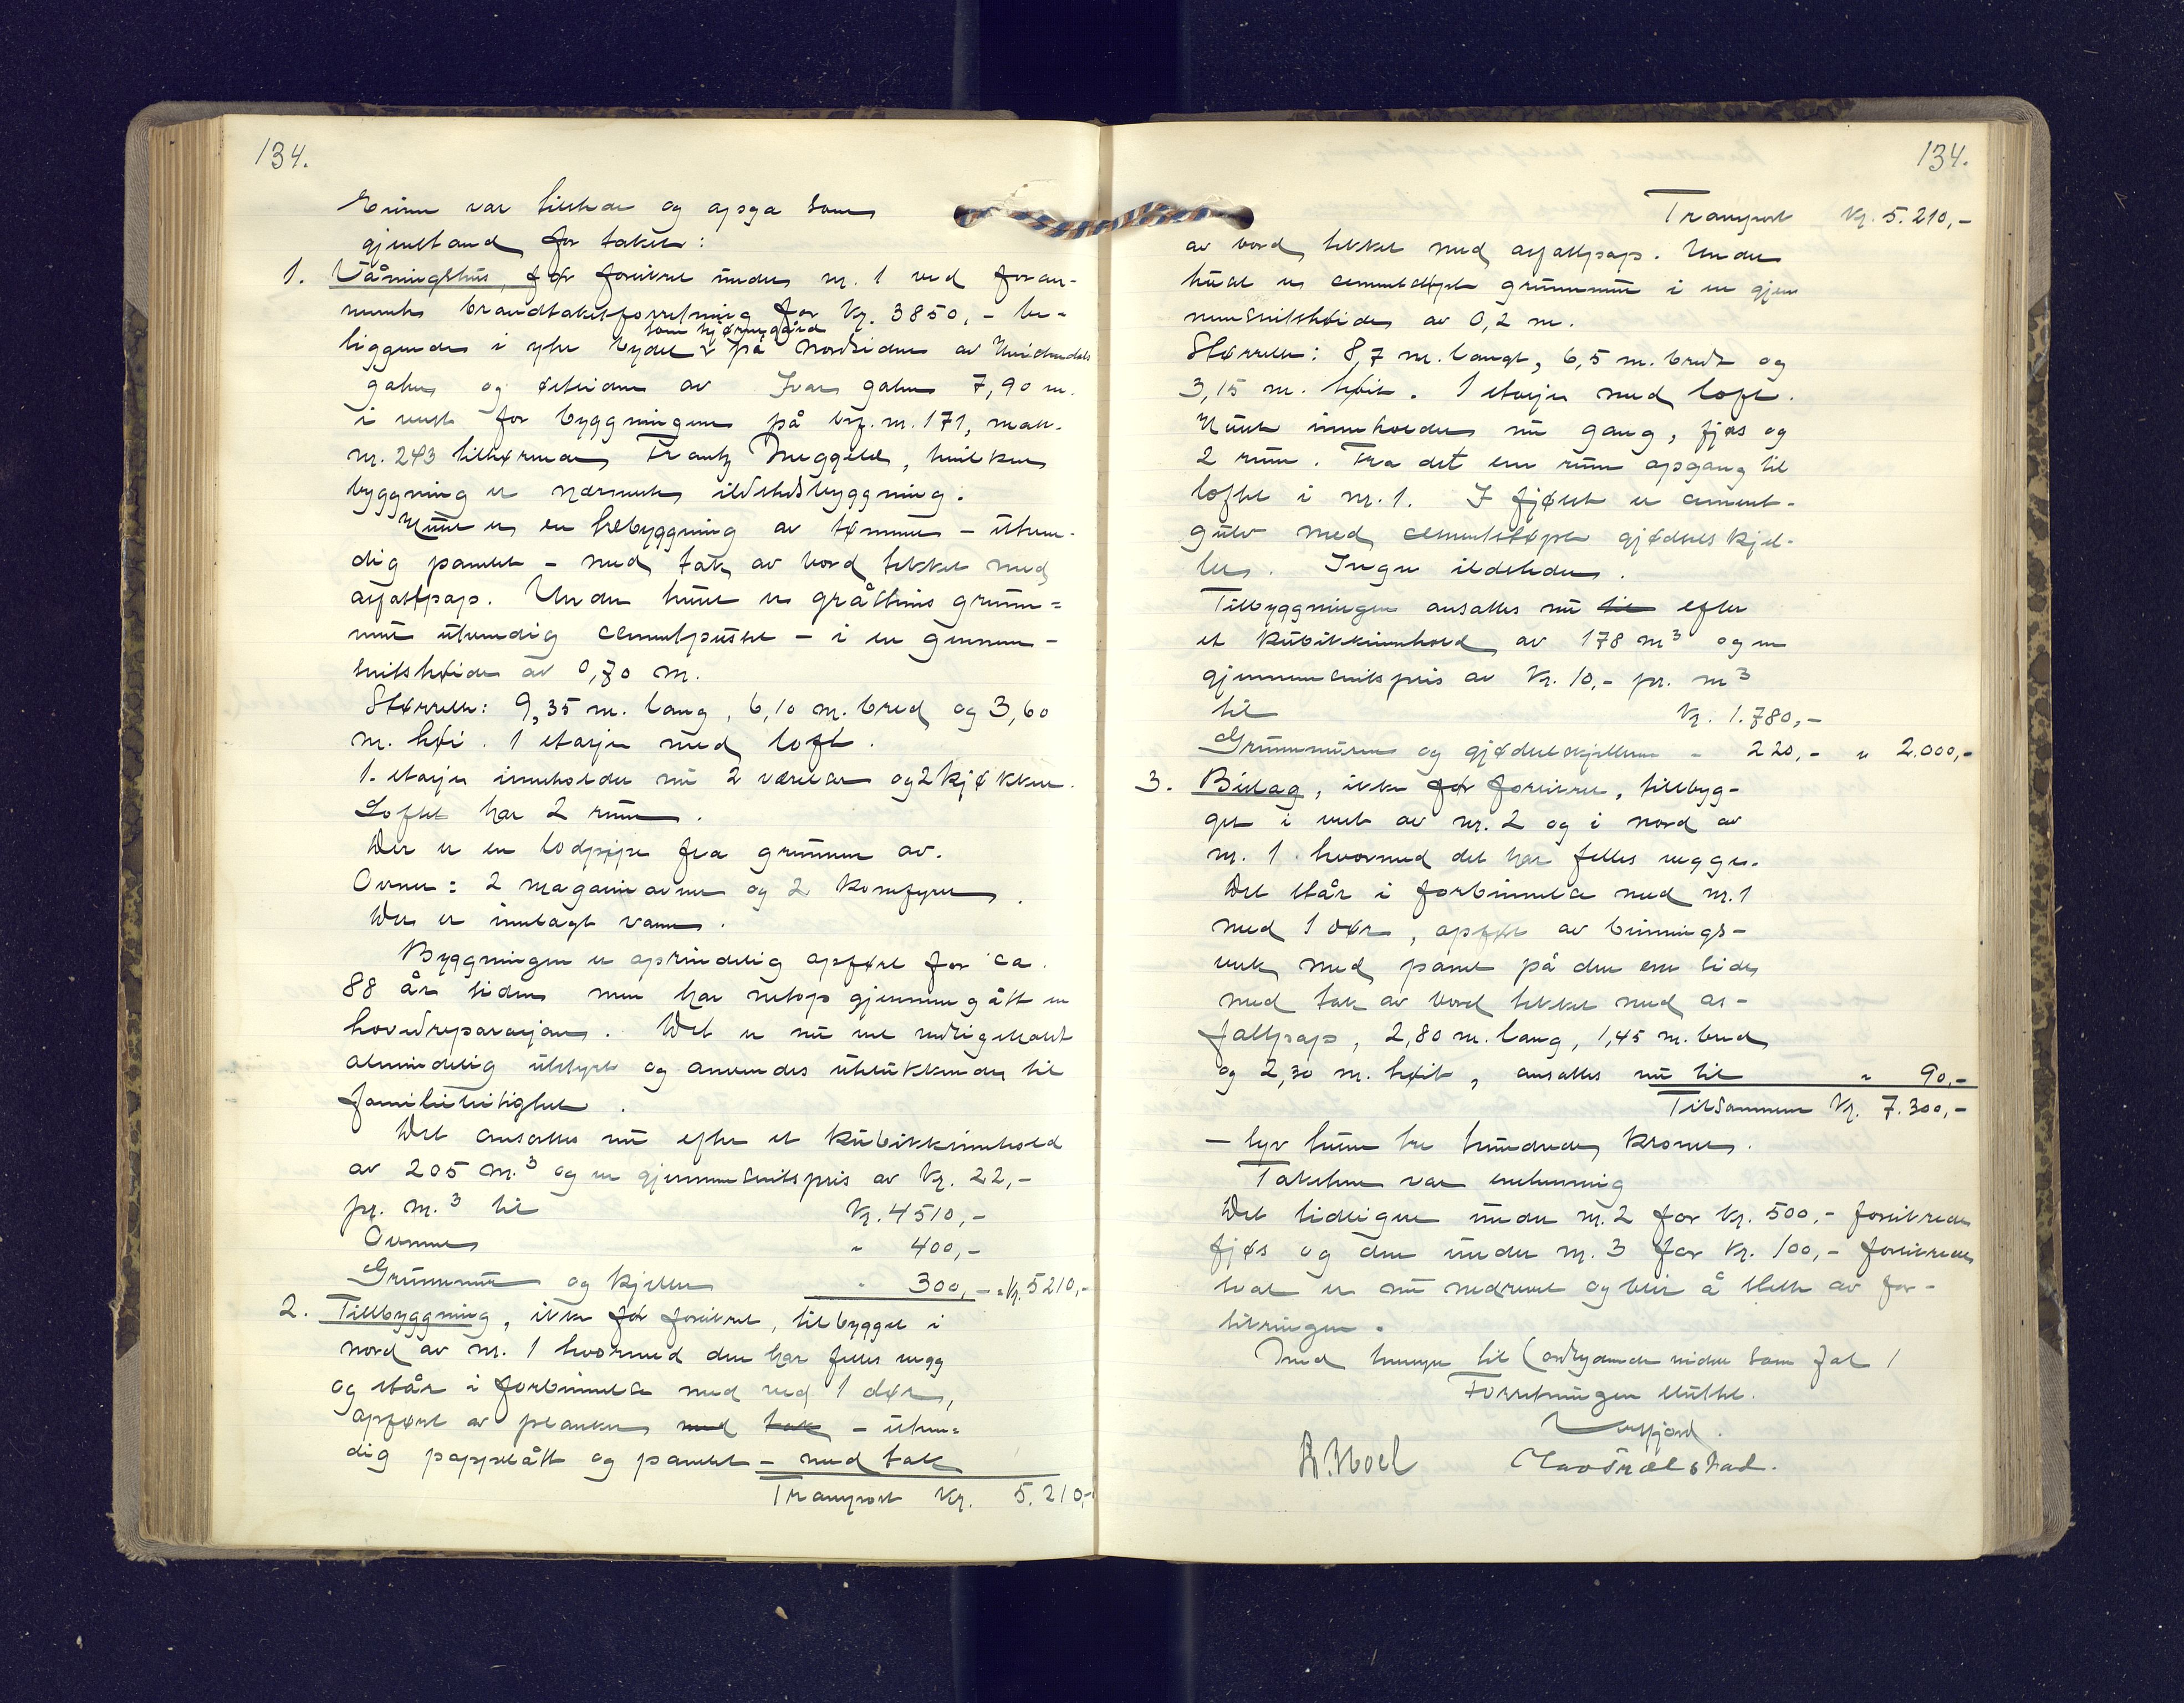 134.
Eieren var tilstede og opga som
gjenstand for taksten:
1. Våningshus, før forsikret under nr. 1 ved foran-
nevnte brandtakstforretning for kr. 3850,- be-
som hjørnegård
liggende i ytre bydel v på nordsiden av
gaten og østsiden av Ivars gaten 7,90 m.
i vest for byggningen på brf. nr. 171, matr.
nr. 243 tilhørende Frantz, hvilken
byggning er nærmeste ildstedsbyggning.
Huset er en helbyggning av tømmer - utven-
dig panelt - med tak av bord tekket med
asfaltpap. Under huset er gråstens grunn-
mur utvendig cementpusset - i en gjennem-
snitshøide av 0,70 m.
Størrelse: 9,35 m. lang, 6,10 m. bred og 3,60
m. høi. 1 etasje med loft.
1. etasje inneholder nu 2 værelser og 2 kjøkken.
Loftet har 2 rum.
Der er en lodpipe fra grunnen av.
Ovner: 2 magasinovner og 2 komfyrer.
Der er innlagt vann.
Byggningen er oprindelig opført for ca.
88 år siden men har netop gjennemgått en
hovedreparasjon. Det er nu vel vedlikeholdt
almindelig utstyrt og anvendes utelukkende til
familieleilighet.
Det ansattes nu efter et kubikkinnhold
av 205 m.³ og en gjennemsnitspris av kr. 22,-
pr. m.³ til kr. 4510,-
Ovnene " 400,-
Grunnmur og kjeller " 300,- = kr. 5210,-
2. Tilbyggning, ikke før forsikret, tilbygget i
nord av nr. 1 hvormed den har felles vegg
og står i forbindelse med ved 1 dør,
opført av planker med tak - utven-
dig pappslått og panelt - med tak
Transport kr. 5.210,-
134.
Transport kr. 5.210,-
av bord tekket med asfaltpap. Under
huset er cementstøpt grunnmur i en gjen
nemsnitshøide av 0,2 m.
Størrelse: 8,7 m. langt, 6,5 m. bredt og
3,15 m. høit. 1 etasje med loft.
Huset inneholder nu gang, fjøs og
2 rum. Fra det ene rum opgang til
loftet i nr. 1. I fjøset er cement-
gulv med cementstøpt gjødselskjel-
ler. Ingen ildsteder.
Tilbyggningen ansattes nu til efter
et kubikkinnhold av 178 m³ og en
gjennemsnitspris av kr. 10,- pr. m³
til kr. 1.780,-
Grunnmuren og gjødselskjelleren " 220,- " 2.000,-
3. Bislag, ikke før forsikret, tilbyg-
get i vest av nr. 2 og i nord av
nr. 1 hvormed det har felles vegger.
Det står i forbindelse med nr. 1
med 1 dør, opført av binnings-
verk med panel på den ene side,
med tak av bord tekket med as-
faltpap, 2,80 m. lang, 1,45 m. bred
og 2,30 m. høit, ansattes nu til " 90,-
Tilsammen kr. 7.300,-
- syv tusen tre hundrede kroner.
Taksten var enstemmig
Det tidligere under nr. 2 for kr. 500,- forsikrede
fjøs og den under nr. 3 for kr. 100,- forsikrede
sval er nu nedrevet og blir å slette av for-
sikringen.
Med hensyn til omkring­liggende videre som fol 1
Forretningen sluttet.